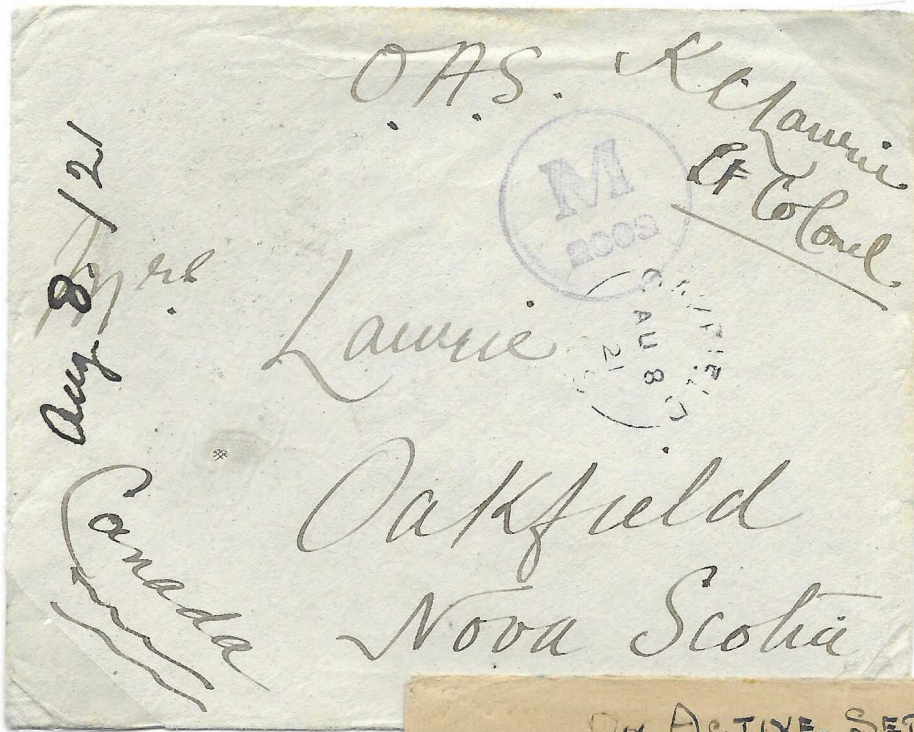 O.A.S. K Laurie
Lt Colonel
M
2002
AU 8
21
Mrs. Laurie
Oakfield
Nova Scotia
Canada
Aug 8. /21
On ACTIVE SER